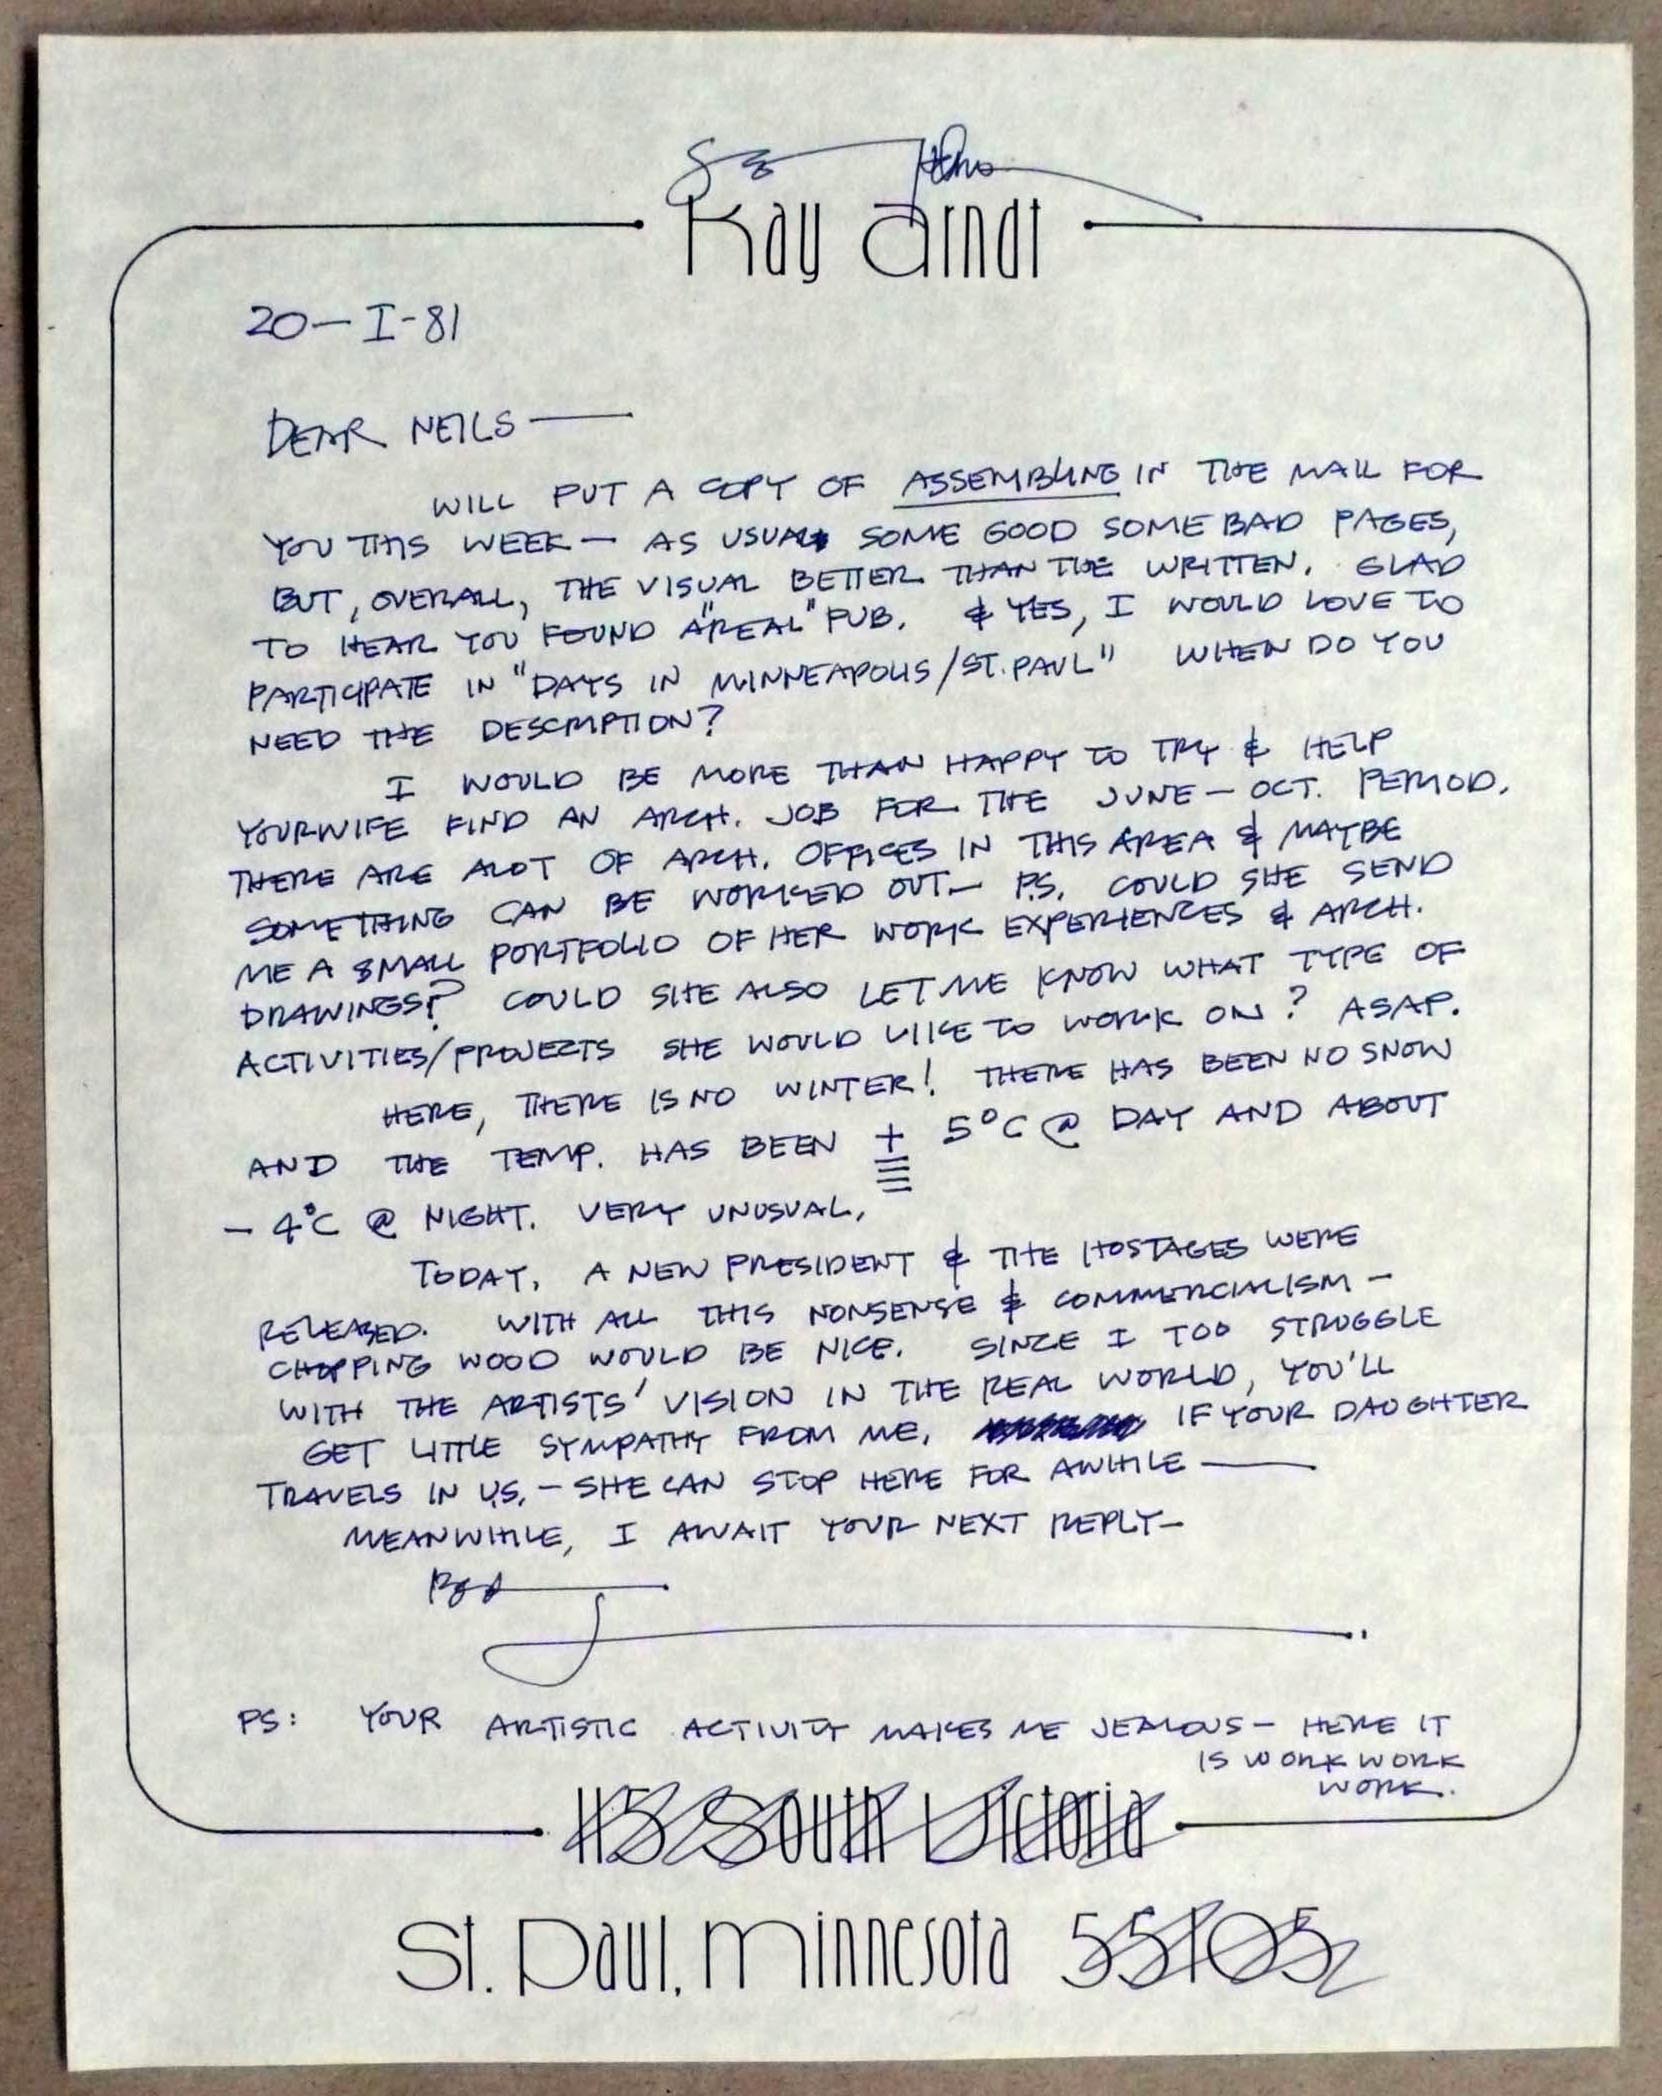 Kay Arndt
20-I-81
DEAR NEILS —
WILL PUT A COPY OF ASSEMBLING IN THE MAIL FOR
YOU THIS WEEK — AS USUAL SOME GOOD SOME BAD PAGES,
BUT, OVERALL, THE VISUAL BETTER THAN THE WRITTEN. GLAD
TO HEAR YOU FOUND A "REAL" PUB. & YES, I WOULD LOVE TO
PARTICIPATE IN "DAYS IN MINNEAPOLIS/ST. PAUL" WHEN DO YOU
NEED THE DESCRIPTION?
I WOULD BE MORE THAN HAPPY TO TRY & HELP
YOUR WIFE FIND AN ARCH. JOB FOR THE JUNE — OCT. PERIOD.
THERE ARE ALOT OF ARCH. OFFICES IN THIS AREA & MAYBE
SOMETHING CAN BE WORKED OUT — P.S. COULD SHE SEND
ME A SMALL PORTFOLIO OF HER WORK EXPERIENCES & ARCH.
DRAWINGS? COULD SHE ALSO LET ME KNOW WHAT TYPE OF
ACTIVITIES/PROJECTS SHE WOULD LIKE TO WORK ON? ASAP.
HERE, THERE IS NO WINTER! THERE HAS BEEN NO SNOW
AND THE TEMP. HAS BEEN + 5°C @ DAY AND ABOUT
- 4°C @ NIGHT. VERY UNUSUAL.
TODAY, A NEW PRESIDENT & THE HOSTAGES WERE
RELEASED. WITH ALL THIS NONSENSE & COMMERCIALISM —
CHOPPING WOOD WOULD BE NICE. SINCE I TOO STRUGGLE
WITH THE ARTISTS' VISION IN THE REAL WORLD, YOU'LL
GET LITTLE SYMPATHY FROM ME. IF YOUR DAUGHTER
TRAVELS IN U.S. — SHE CAN STOP HERE FOR AWHILE —
MEANWHILE, I AWAIT YOUR NEXT REPLY —
PS: YOUR ARTISTIC ACTIVITY MAKES ME JEALOUS — HERE IT
IS WORK WORK
WORK.
115 South Victoria
St. Paul, Minnesota 55105